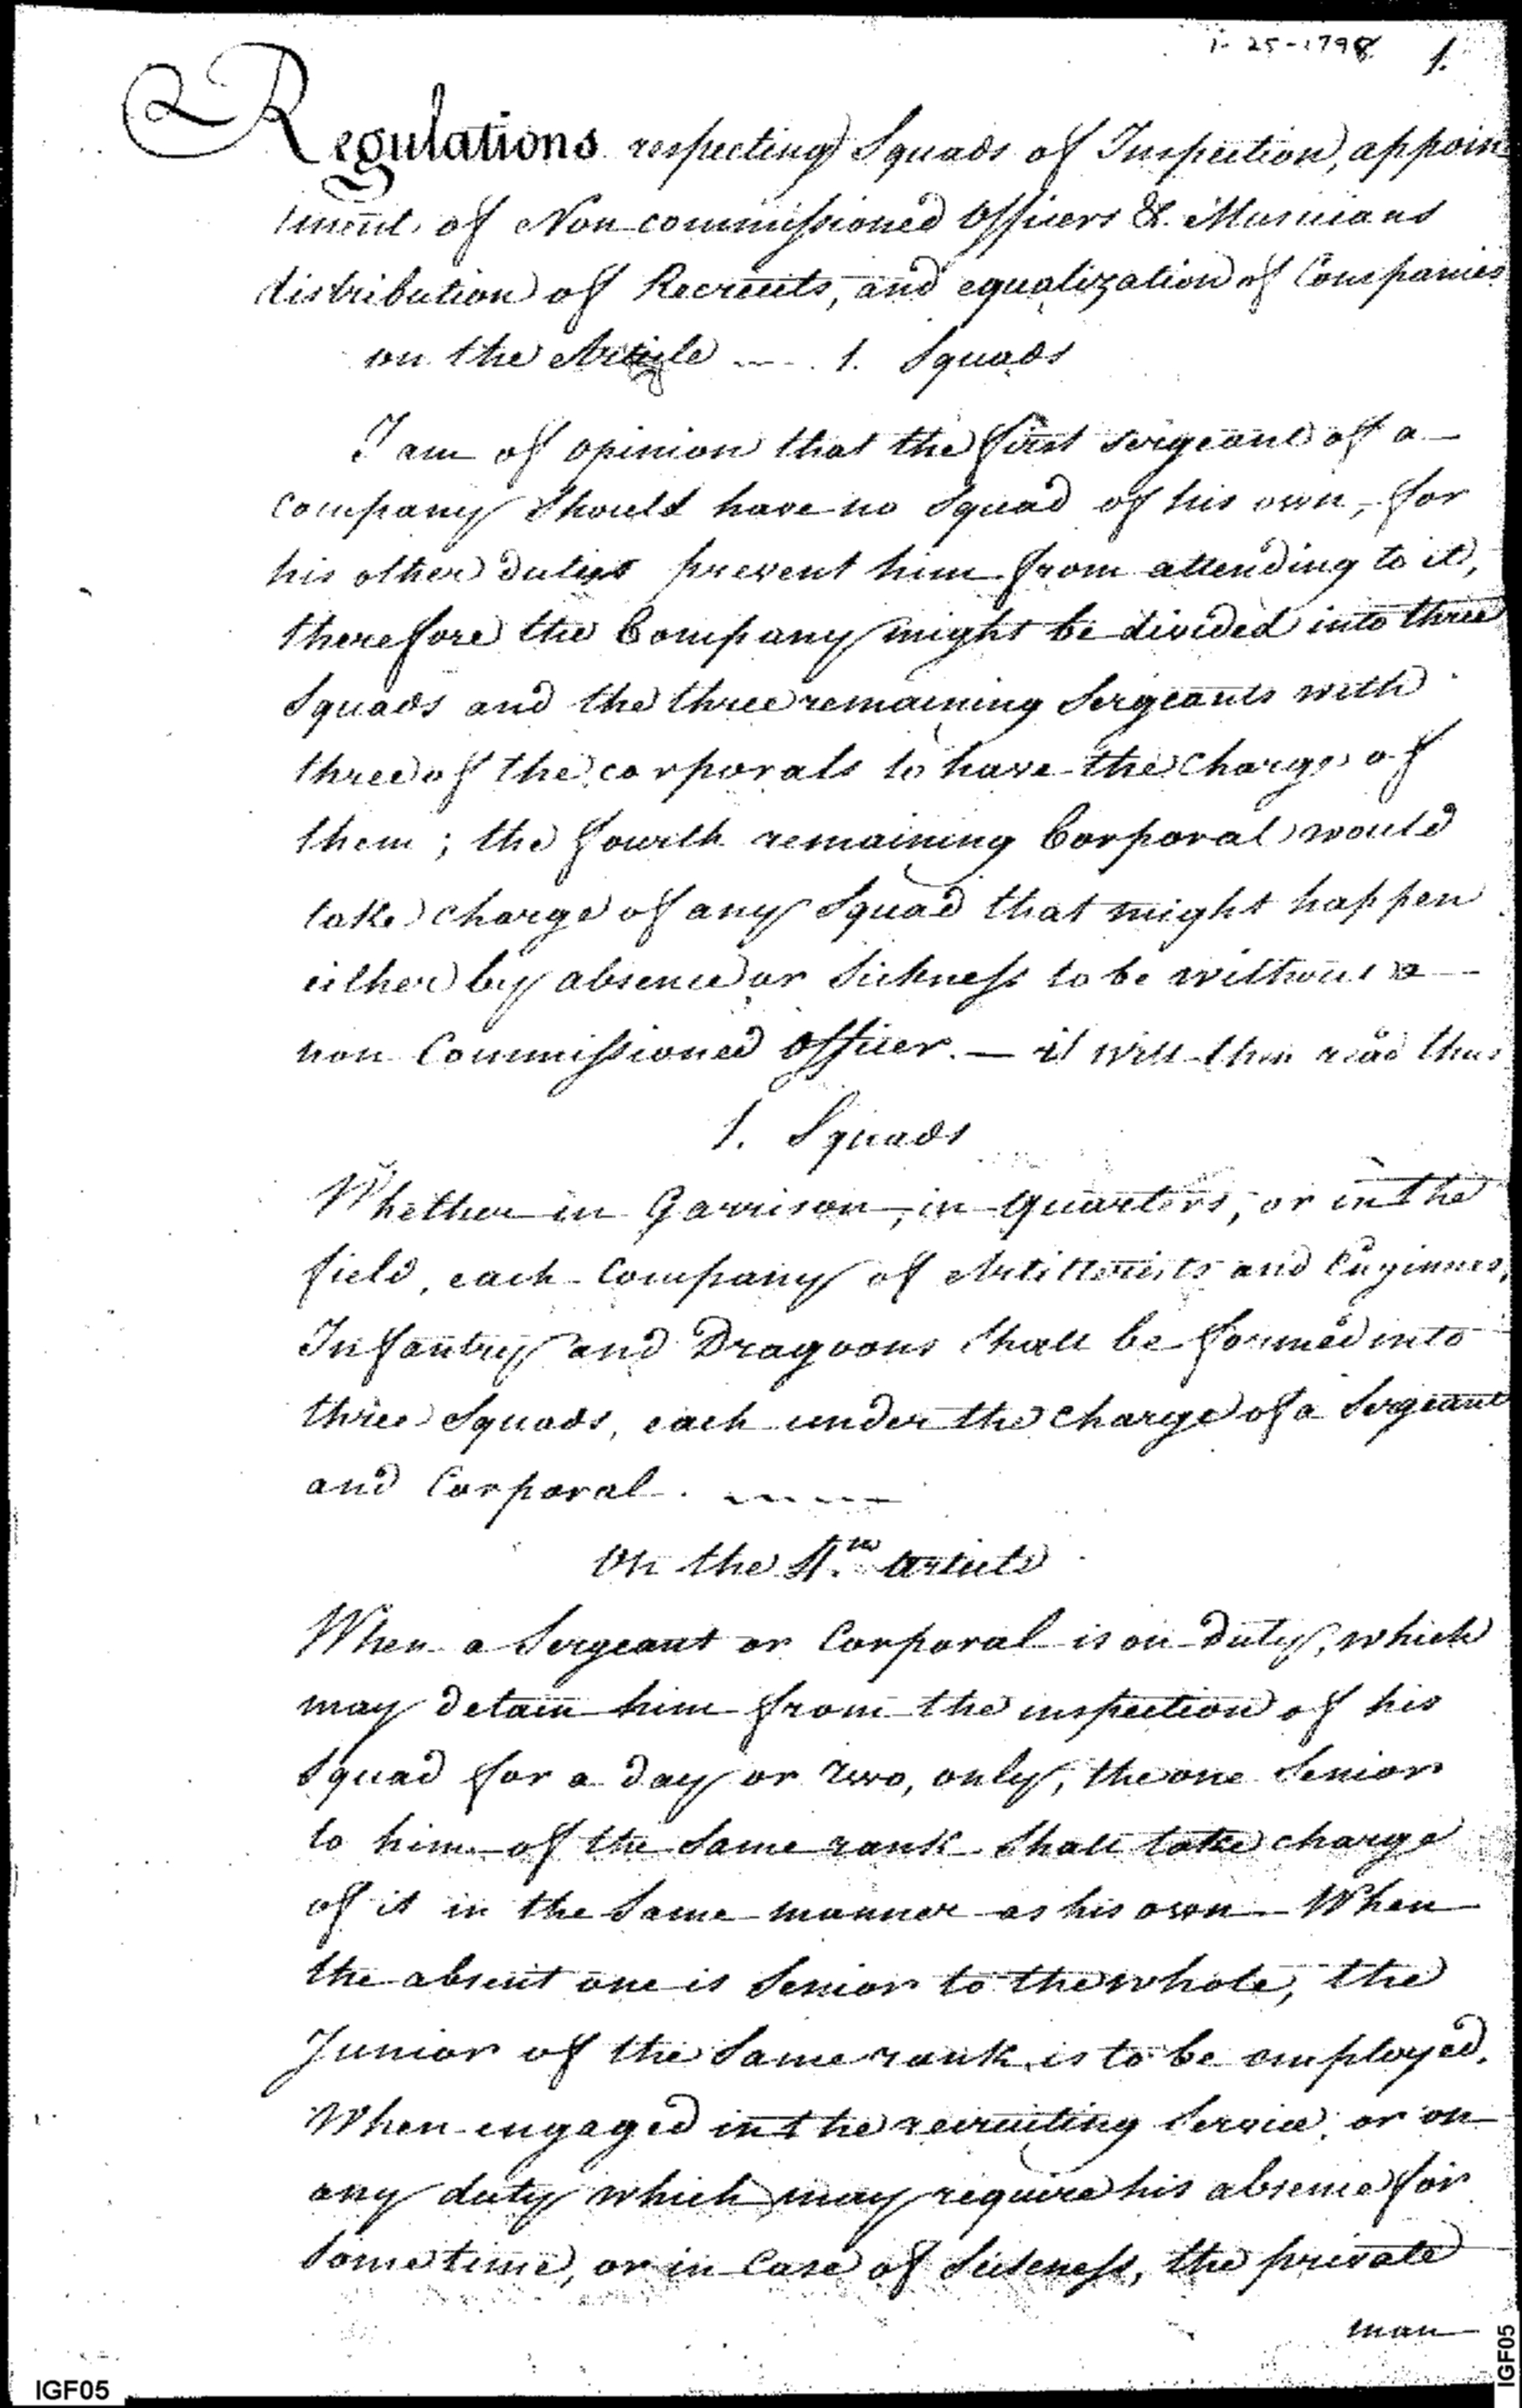 1-25-1798 1.
Regulations respecting Squads of Inspection, appoin
tment of Non commissioned Officers & Musicians
distribution of Recruits, and equalization of Companies
on the Article --- 1. Squads
I am of opinion that the first sergeant of a
company Should have no Squad of his own, for
his other duties prevent him from attending to it,
therefore the Company might be divided into three
Squads and the three remaining Sergeants with
three of the corporals to have the charge of
them ; the fourth remaining Corporal would
take charge of any Squad that might happen
either by absence or Sickness to be without a
non Commissioned Officer. — it will then read thus
1. Squads
Whether in Garrison, in quarters, or in the
field, each Company of Artillerists and Engineers,
Infantry and Dragoons Shall be formed into
three Squads, each under the charge of a Sergeant
and Corporal. -----
On the 4.th article
When a Sergeant or Corporal is on duty, which
may detain him from the inspection of his
Squad for a day or two, only, the one Senior
to him of the Same rank Shall take charge
of it in the Same manner as his own. When
the absent one is Senior to the whole, the
Junior of the Same rank is to be employed.
When engaged in the recruiting Service, or on
any duty which may require his absence for
Some time, or in Case of Sickness, the private
man
IGF05
IGF05